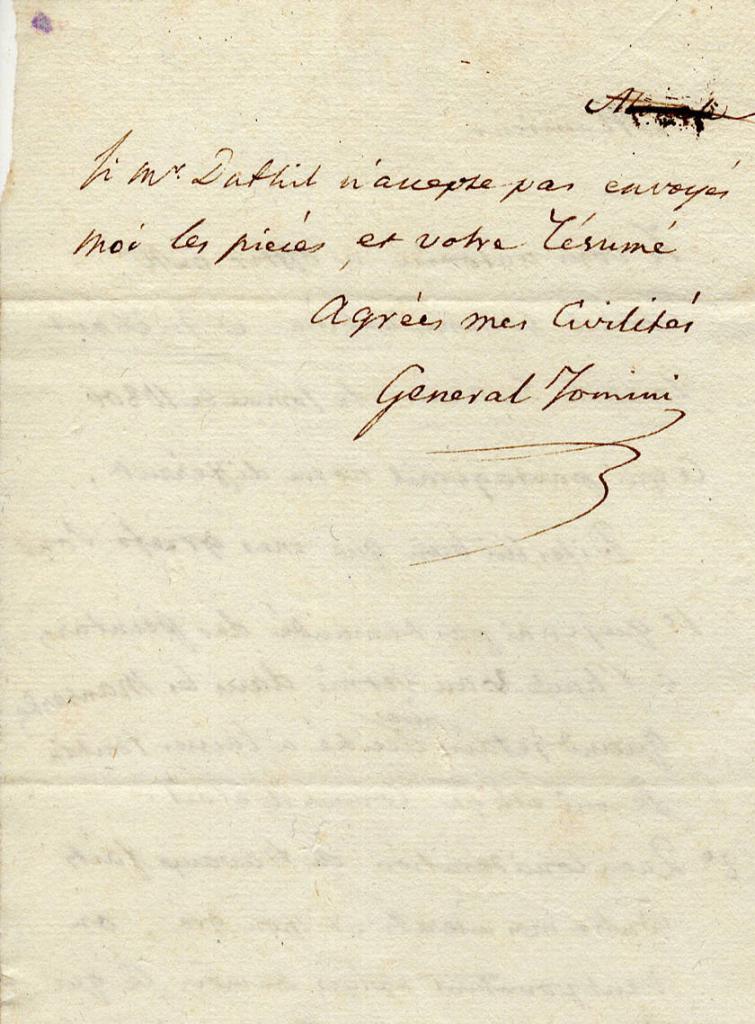 Si Mr. Duthil n'accepte pas envoyés
moi les pièces et votre résumé
Agrées mes Civilités
General Jomini